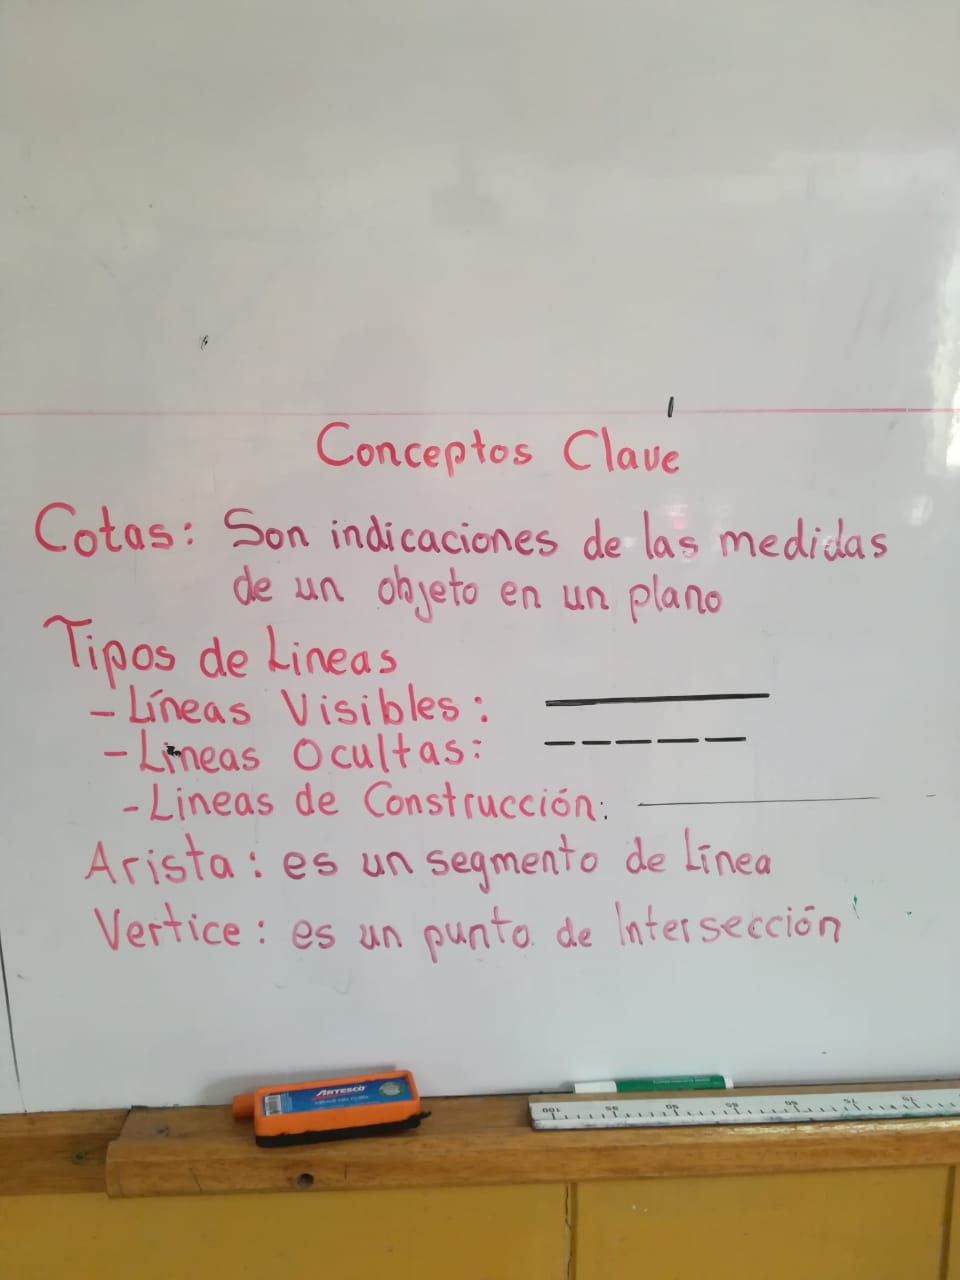 Conceptos Clave
Cotas: Son indicaciones de las medidas
de un objeto en un plano
Tipos de Lineas
- Líneas Visibles:
- Lineas Ocultas:
- Lineas de Construcción:
Arista: es un segmento de Línea
Vertice: es un punto de Intersección
ARTESCO
100 95 90 85 80 75 70